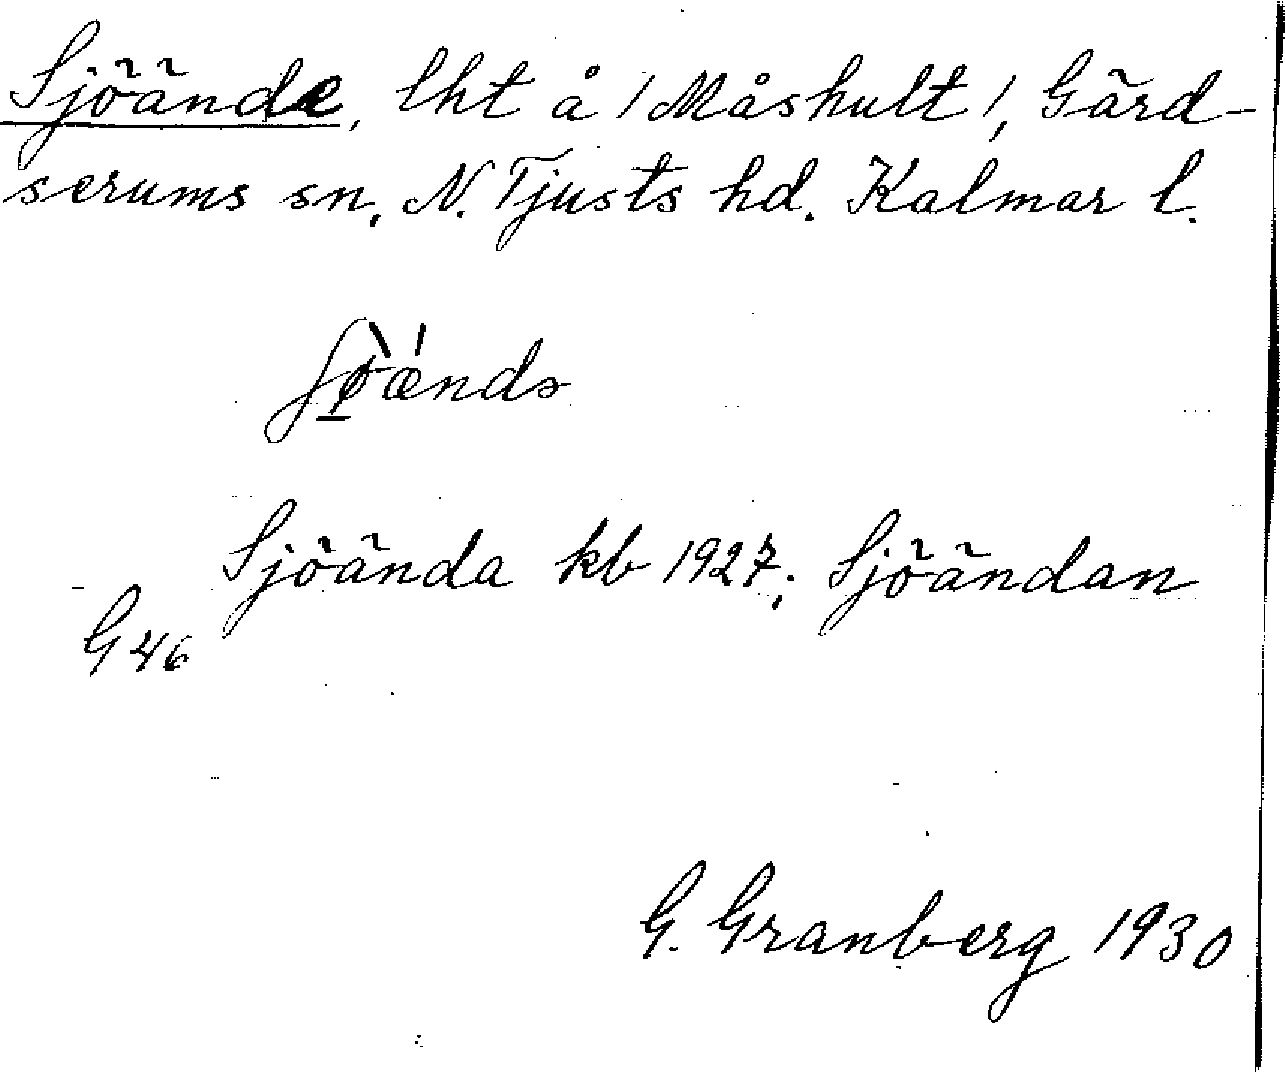 Sjöände, lht å /Måshult/, Gärd-
serums sn, N. Tjusts hd. Kalmar l.
Sjöända kb 1927; Sjöändan
G 46
G. Granberg 1930